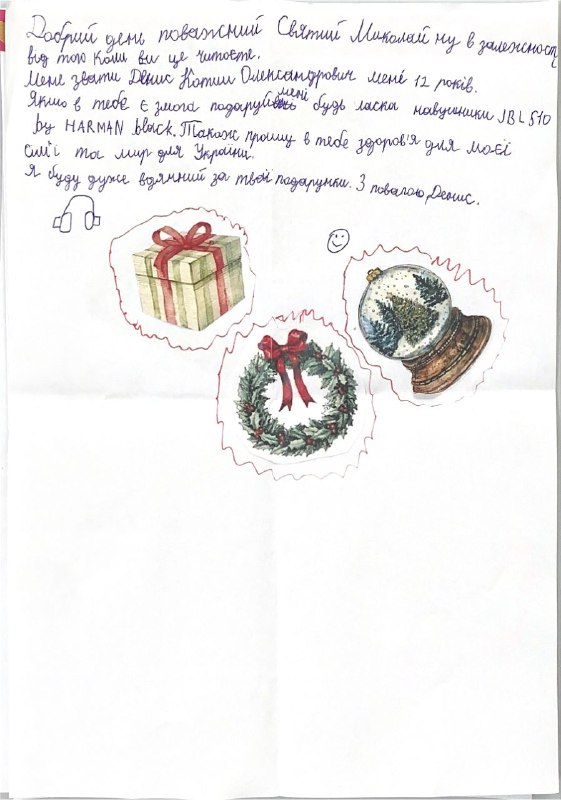 Добрий день поважний Святий Миколай ну в залежності
від того коли ви це читаєте.
Мене звати Денис Котик Олександрович мені 12 років.
Якщо в тебе є змога подаруй мені будь ласка навушники JBL 510
by HARMAN black. Також прошу в тебе здоров'я для моєї
сім'ї та мир для України.
Я буду дуже вдячний за твої подарунки. З повагою Денис.